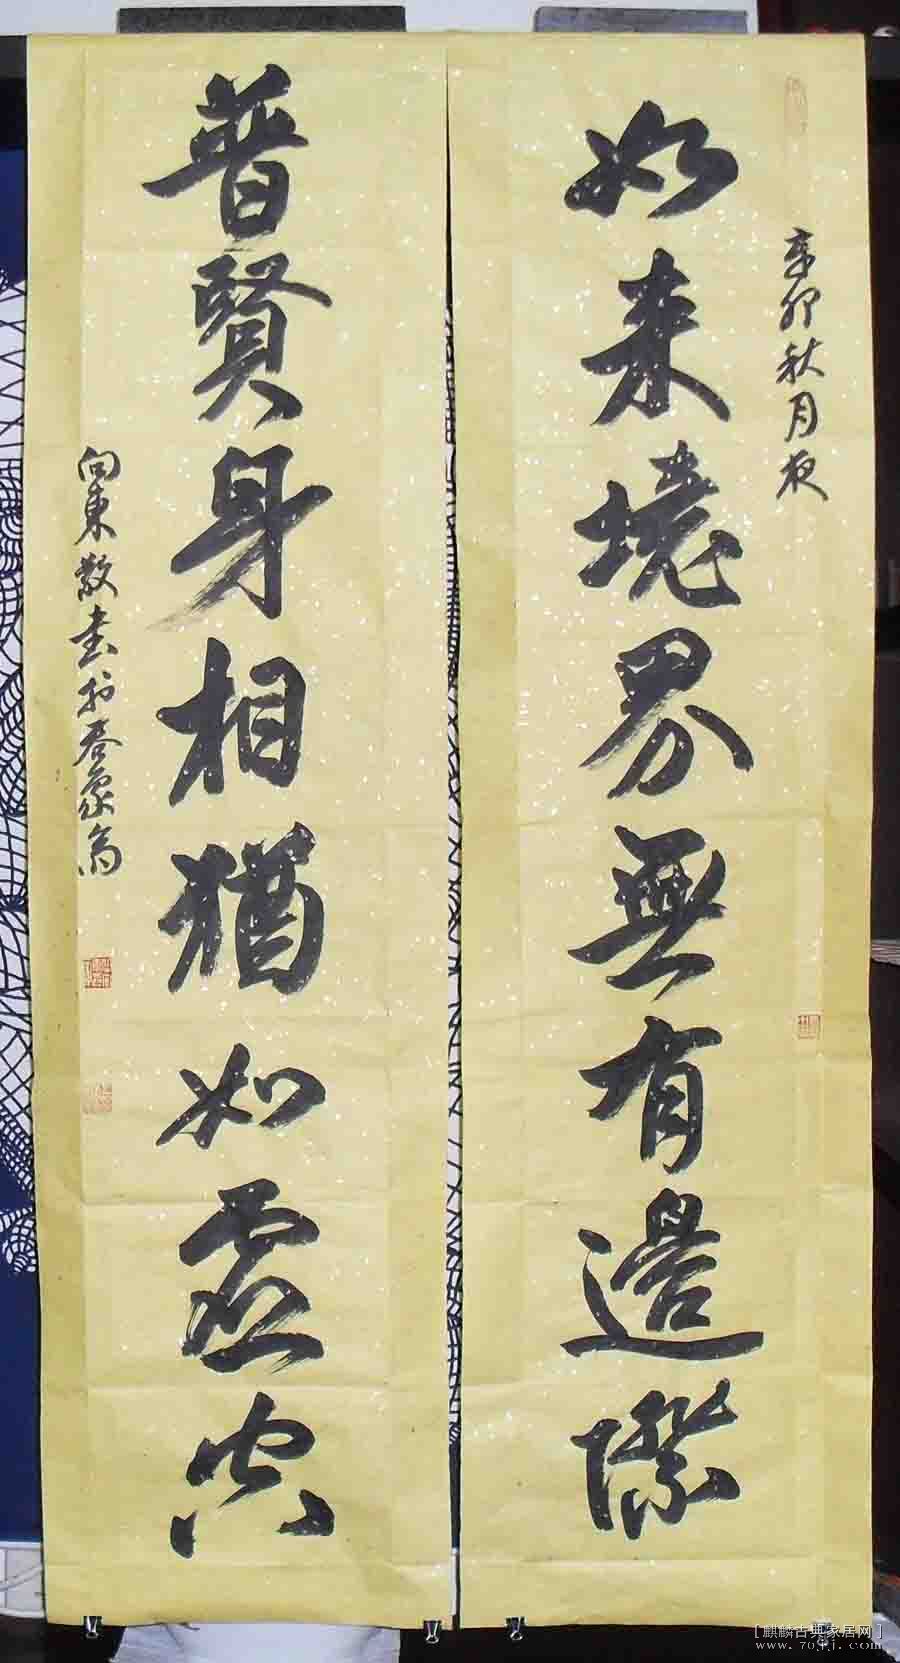 辛卯秋月夜
如来境界無有邊際
普賢身相猶如虛空
向東敬書於春象齋
[麒麟古典家居网]